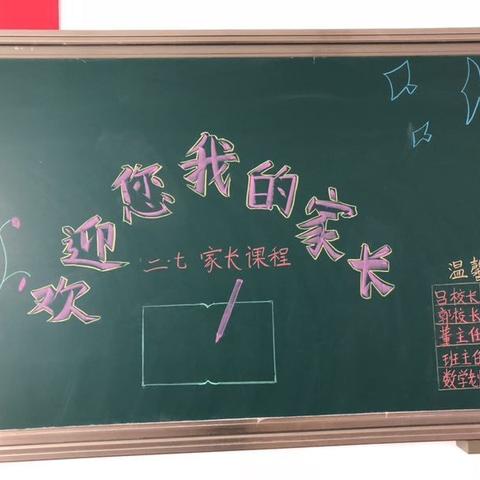 欢迎您我的家长
二.七 家长课程
温馨
吕校长
郭校长
董主任
班主任
数学老